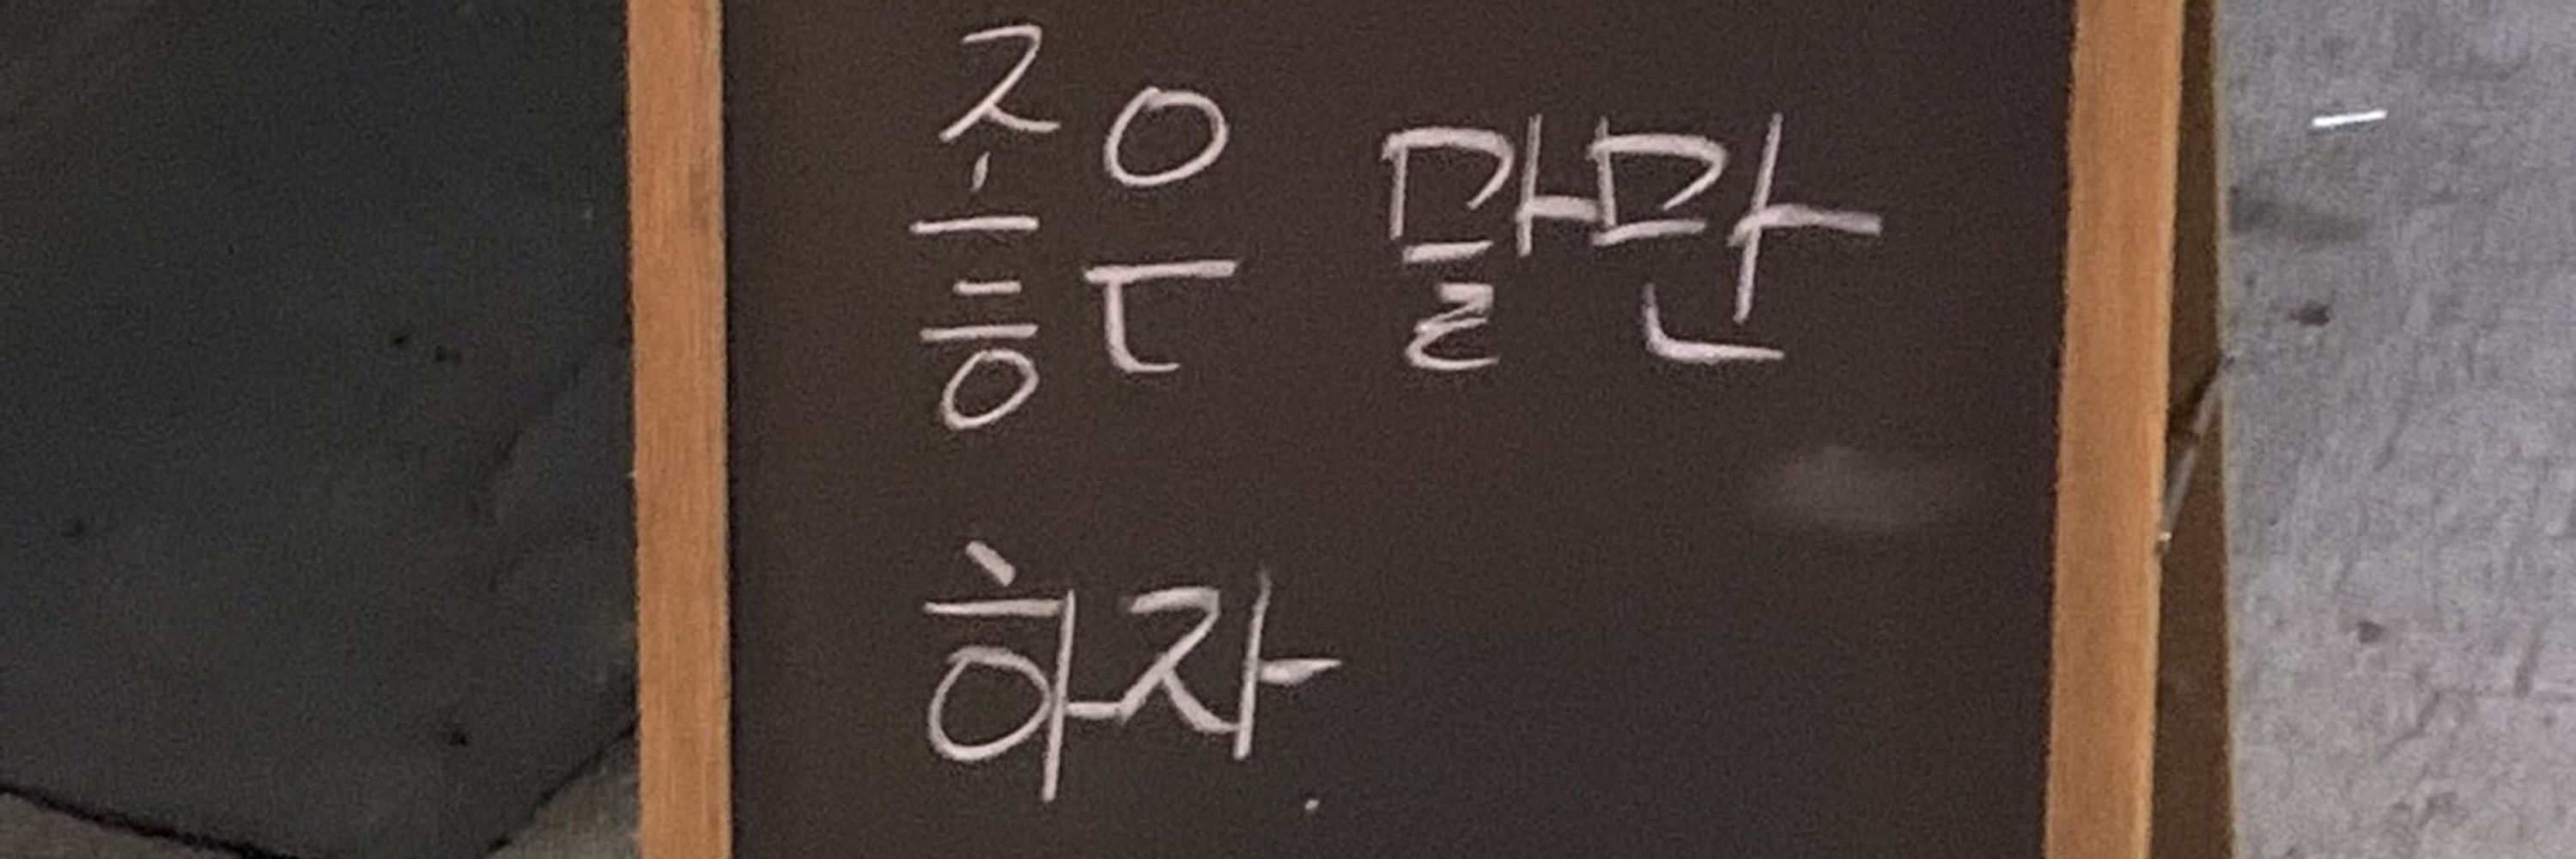 좋은 말만
하자.